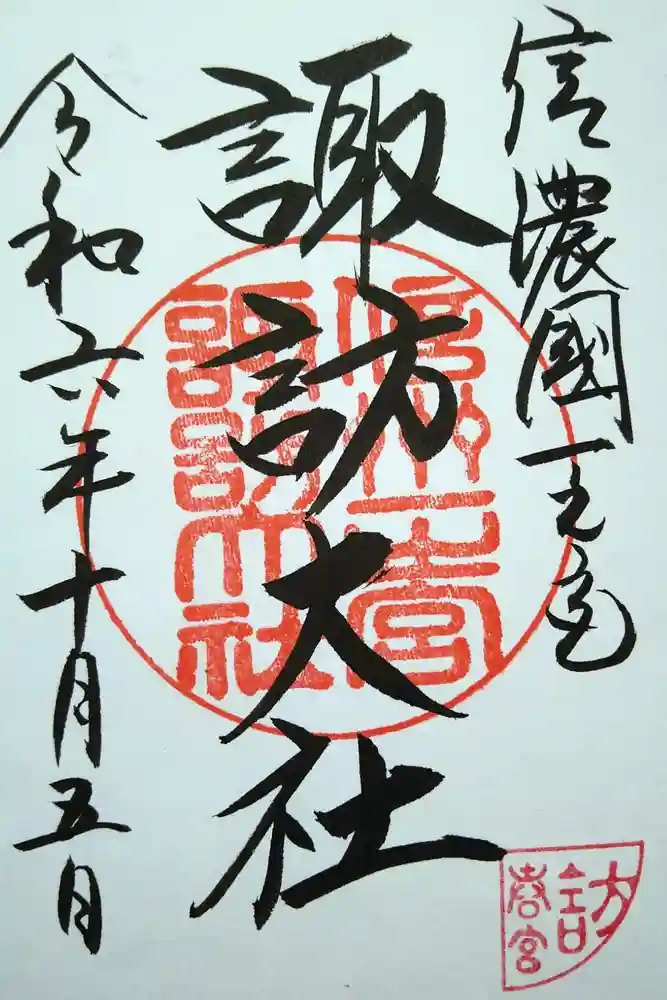 信濃國一之宮
諏訪大社
令和六年十月五日
信州一之宮
諏訪大社
訪
春宮